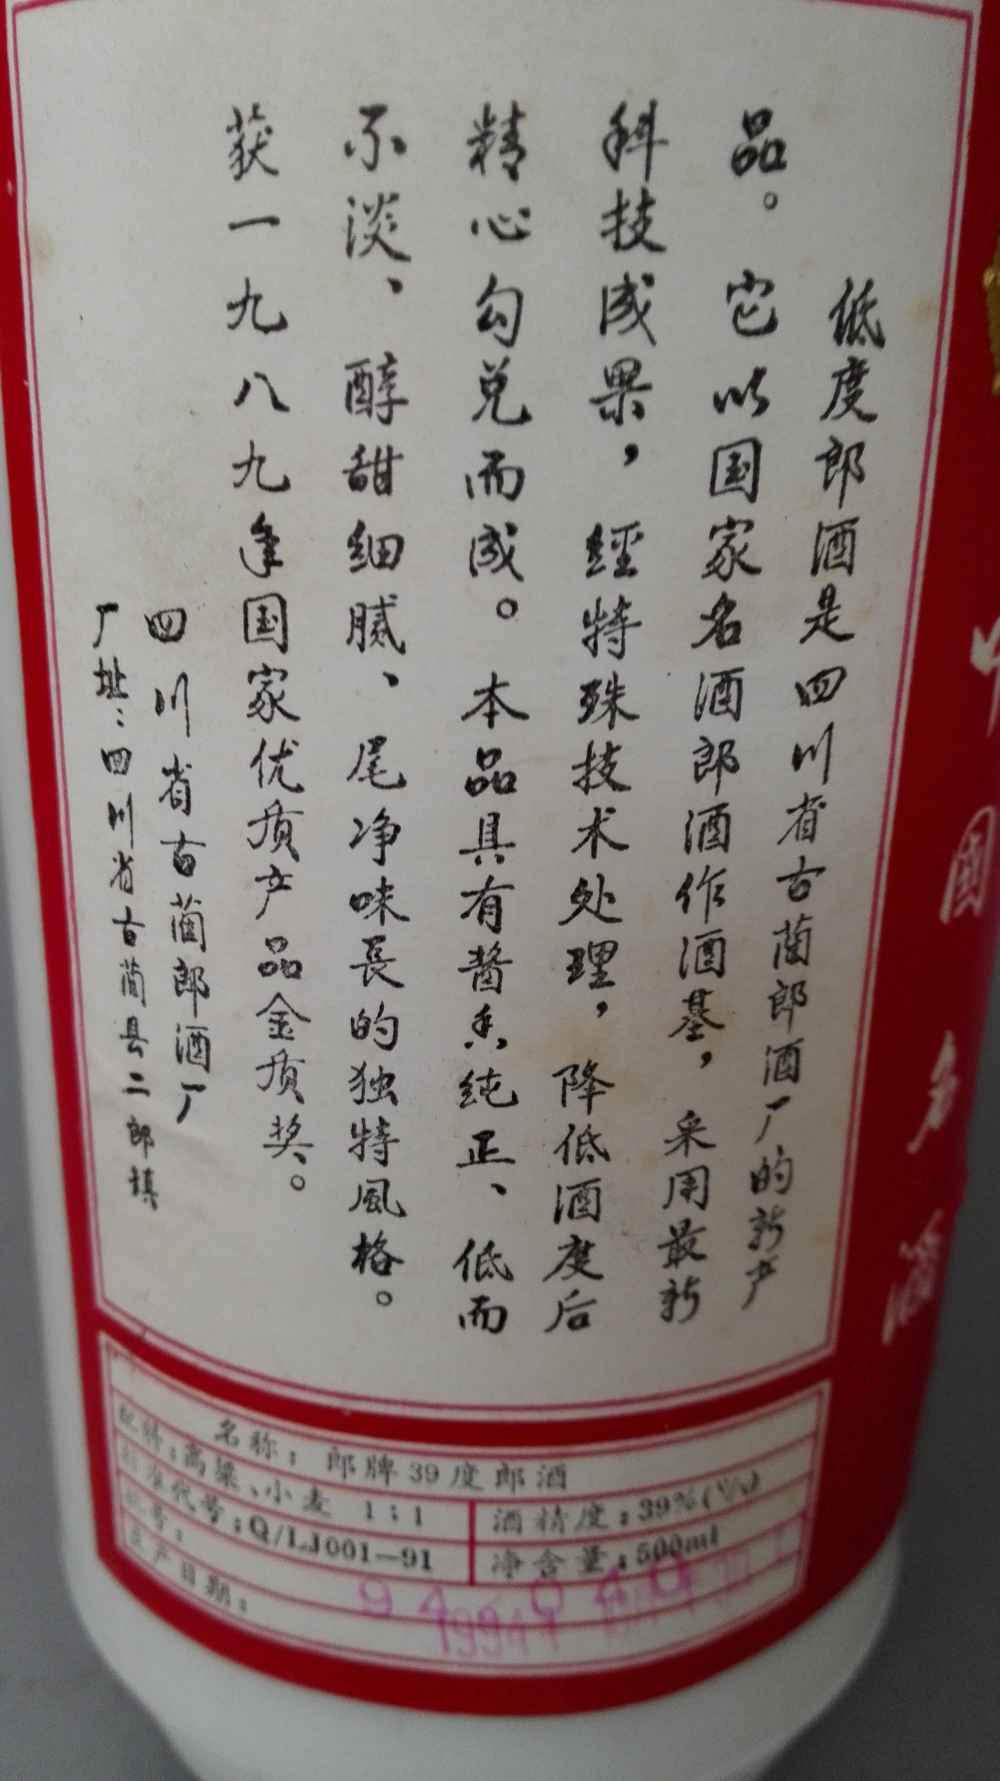 低度郎酒是四川省古蔺郎酒厂的新产
品。它以国家名酒郎酒作酒基，采用最新
科技成果，經特殊技术处理，降低酒度后
精心勾兑而成。本品具有酱香纯正、低而
不淡、醇甜细腻、尾净味長的独特風格。
获一九八九年国家优质产品金质奖。
四川省古蔺郎酒厂
厂址：四川省古蔺县二郎镇
中國名酒
名称：郎牌39度郎酒
配料：高粱、小麦 1：1
酒精度：39%(V/V)
标准代号：Q/LJ001—91
净含量：500ml
批号：94
生产日期：1994年